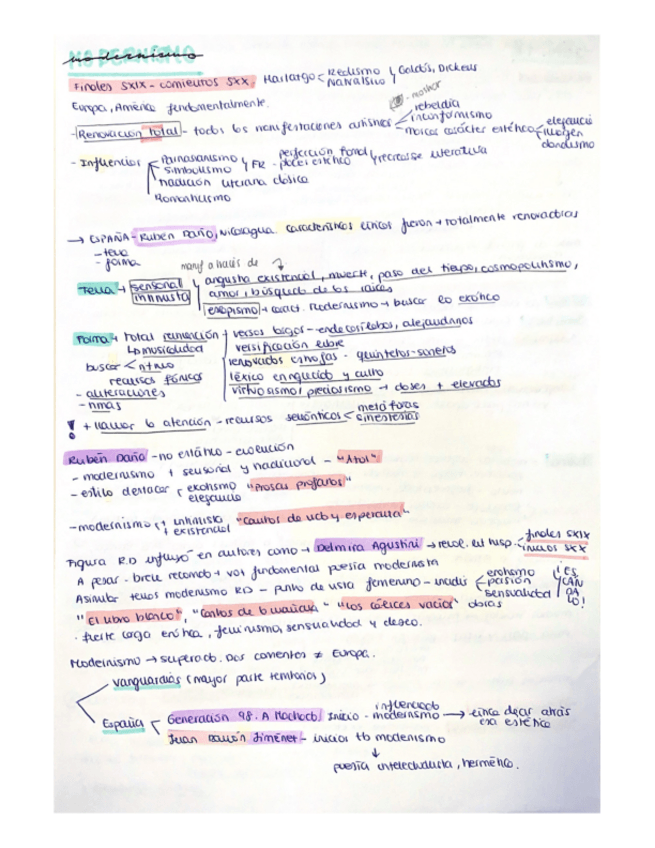 MODERNISMO
Finales SXIX - comienzos SXX. Hartazgo < Realismo Naturalismo } Galdós, Dickens
Europa, América fundamentalmente.
- Renovación total - todas las manifestaciones artísticas < rebeldía
inconformismo
marcar carácter estético < elegancia
imagen
dandismo
- Influencias < Parnasianismo
simbolismo } FR - perfección formal
placer estético } literatura
tradición literaria clásica
Romanticismo
→ ESPAÑA - Rubén Darío, Nicaragua. Características únicas fueron + totalmente renovadoras
- tema
- forma
manif a través de
Tema → sensorial
intimista } angustia existencial, muerte, paso del tiempo, cosmopolitismo,
amor, búsqueda de las raíces
escapismo → caract. Modernismo → buscar lo exótico
Forma → total renovación } versos largos - endecasílabos, alejandrinos
↳ musicalidad versificación libre
buscar < ritmo renovadas estrofas - quintetos - sonetos
recursos fónicos léxico enriquecido y culto
- aliteraciones virtuosismo / preciosismo → dioses + elevados
- rimas
! + llamar la atención - recursos semánticos < metáforas
sinestesias
Rubén Darío - no estático - evolución
- modernismo + sensorial y tradicional - "Azul"
- estilo destacar < exotismo
elegancia "Prosas profanas"
- modernismo < + intimista
+ existencial "Cantos de vida y esperanza"
Figura R.D influyó en autores como → Delmira Agustini → revol. lit hisp. < finales SXIX
inicios SXX
A pesar - breve + voz fundamental poesía modernista
Asimilar temas modernismo RD - punto de vista femenino - < erotismo
pasión
sensualidad ¡ESCÁNDALO!
"El libro blanco", "Cantos de la mañana" "Los cálices vacíos" obras
· fuerte carga erótica, feminismo, sensualidad y deseo.
Modernismo → Dos ≠ Europa.
Vanguardias (mayor parte territorios)
España < Generación 98. A Machado. Inicio - influenciado modernismo → dejar atrás
esa estética
Juan Ramón Jiménez - iniciar tb modernismo
↓
poesía intelectualista, hermético.